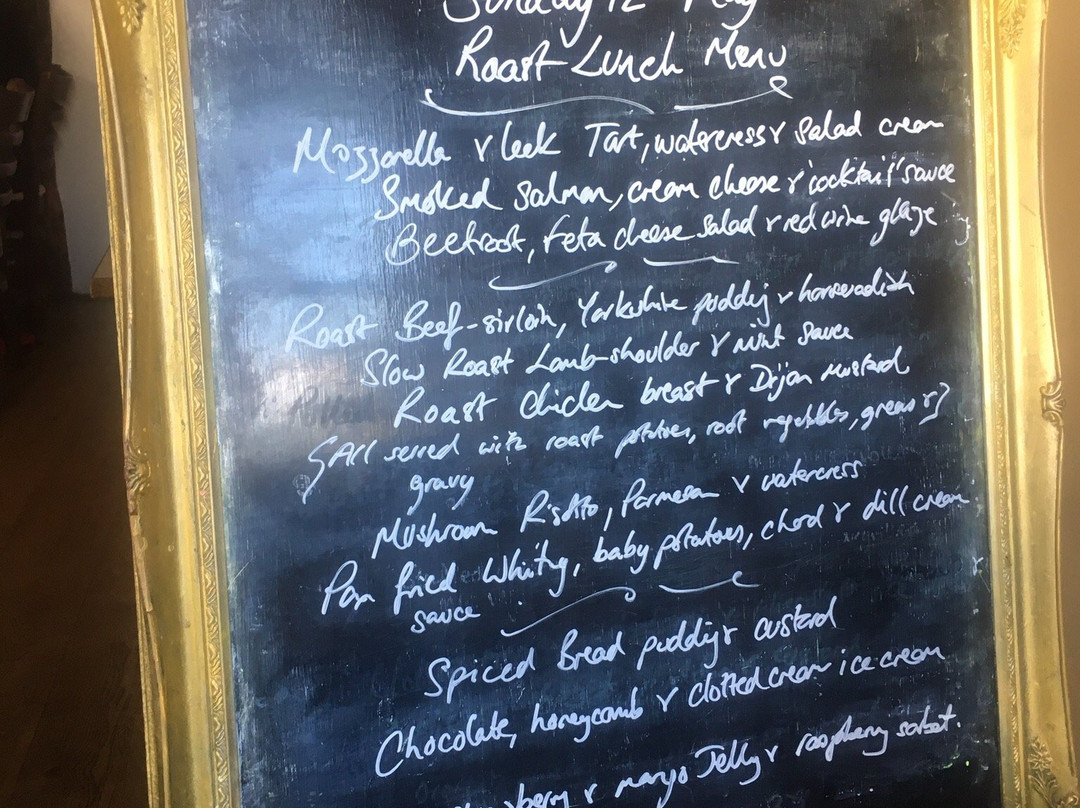 Sunday 12 May
Roast Lunch Menu
Mozzarella & leek Tart, watercress & salad cream
Smoked Salmon, cream cheese & 'cocktail' sauce
Beetroot, feta cheese salad & red wine glaze
Roast Beef-sirloin, Yorkshire pudding & horseradish
Slow Roast Lamb-shoulder & mint sauce
Roast Chicken breast & Dijon Mustard
{All served with roast potatoes, root vegetables, greens &}
gravy
Mushroom Risotto, Parmesan & watercress
Pan fried Whiting, baby potatoes, chard & dill cream
sauce
Spiced Bread pudding & custard
Chocolate, honeycomb & clotted cream ice cream
& mango Jelly & raspberry sorbet.